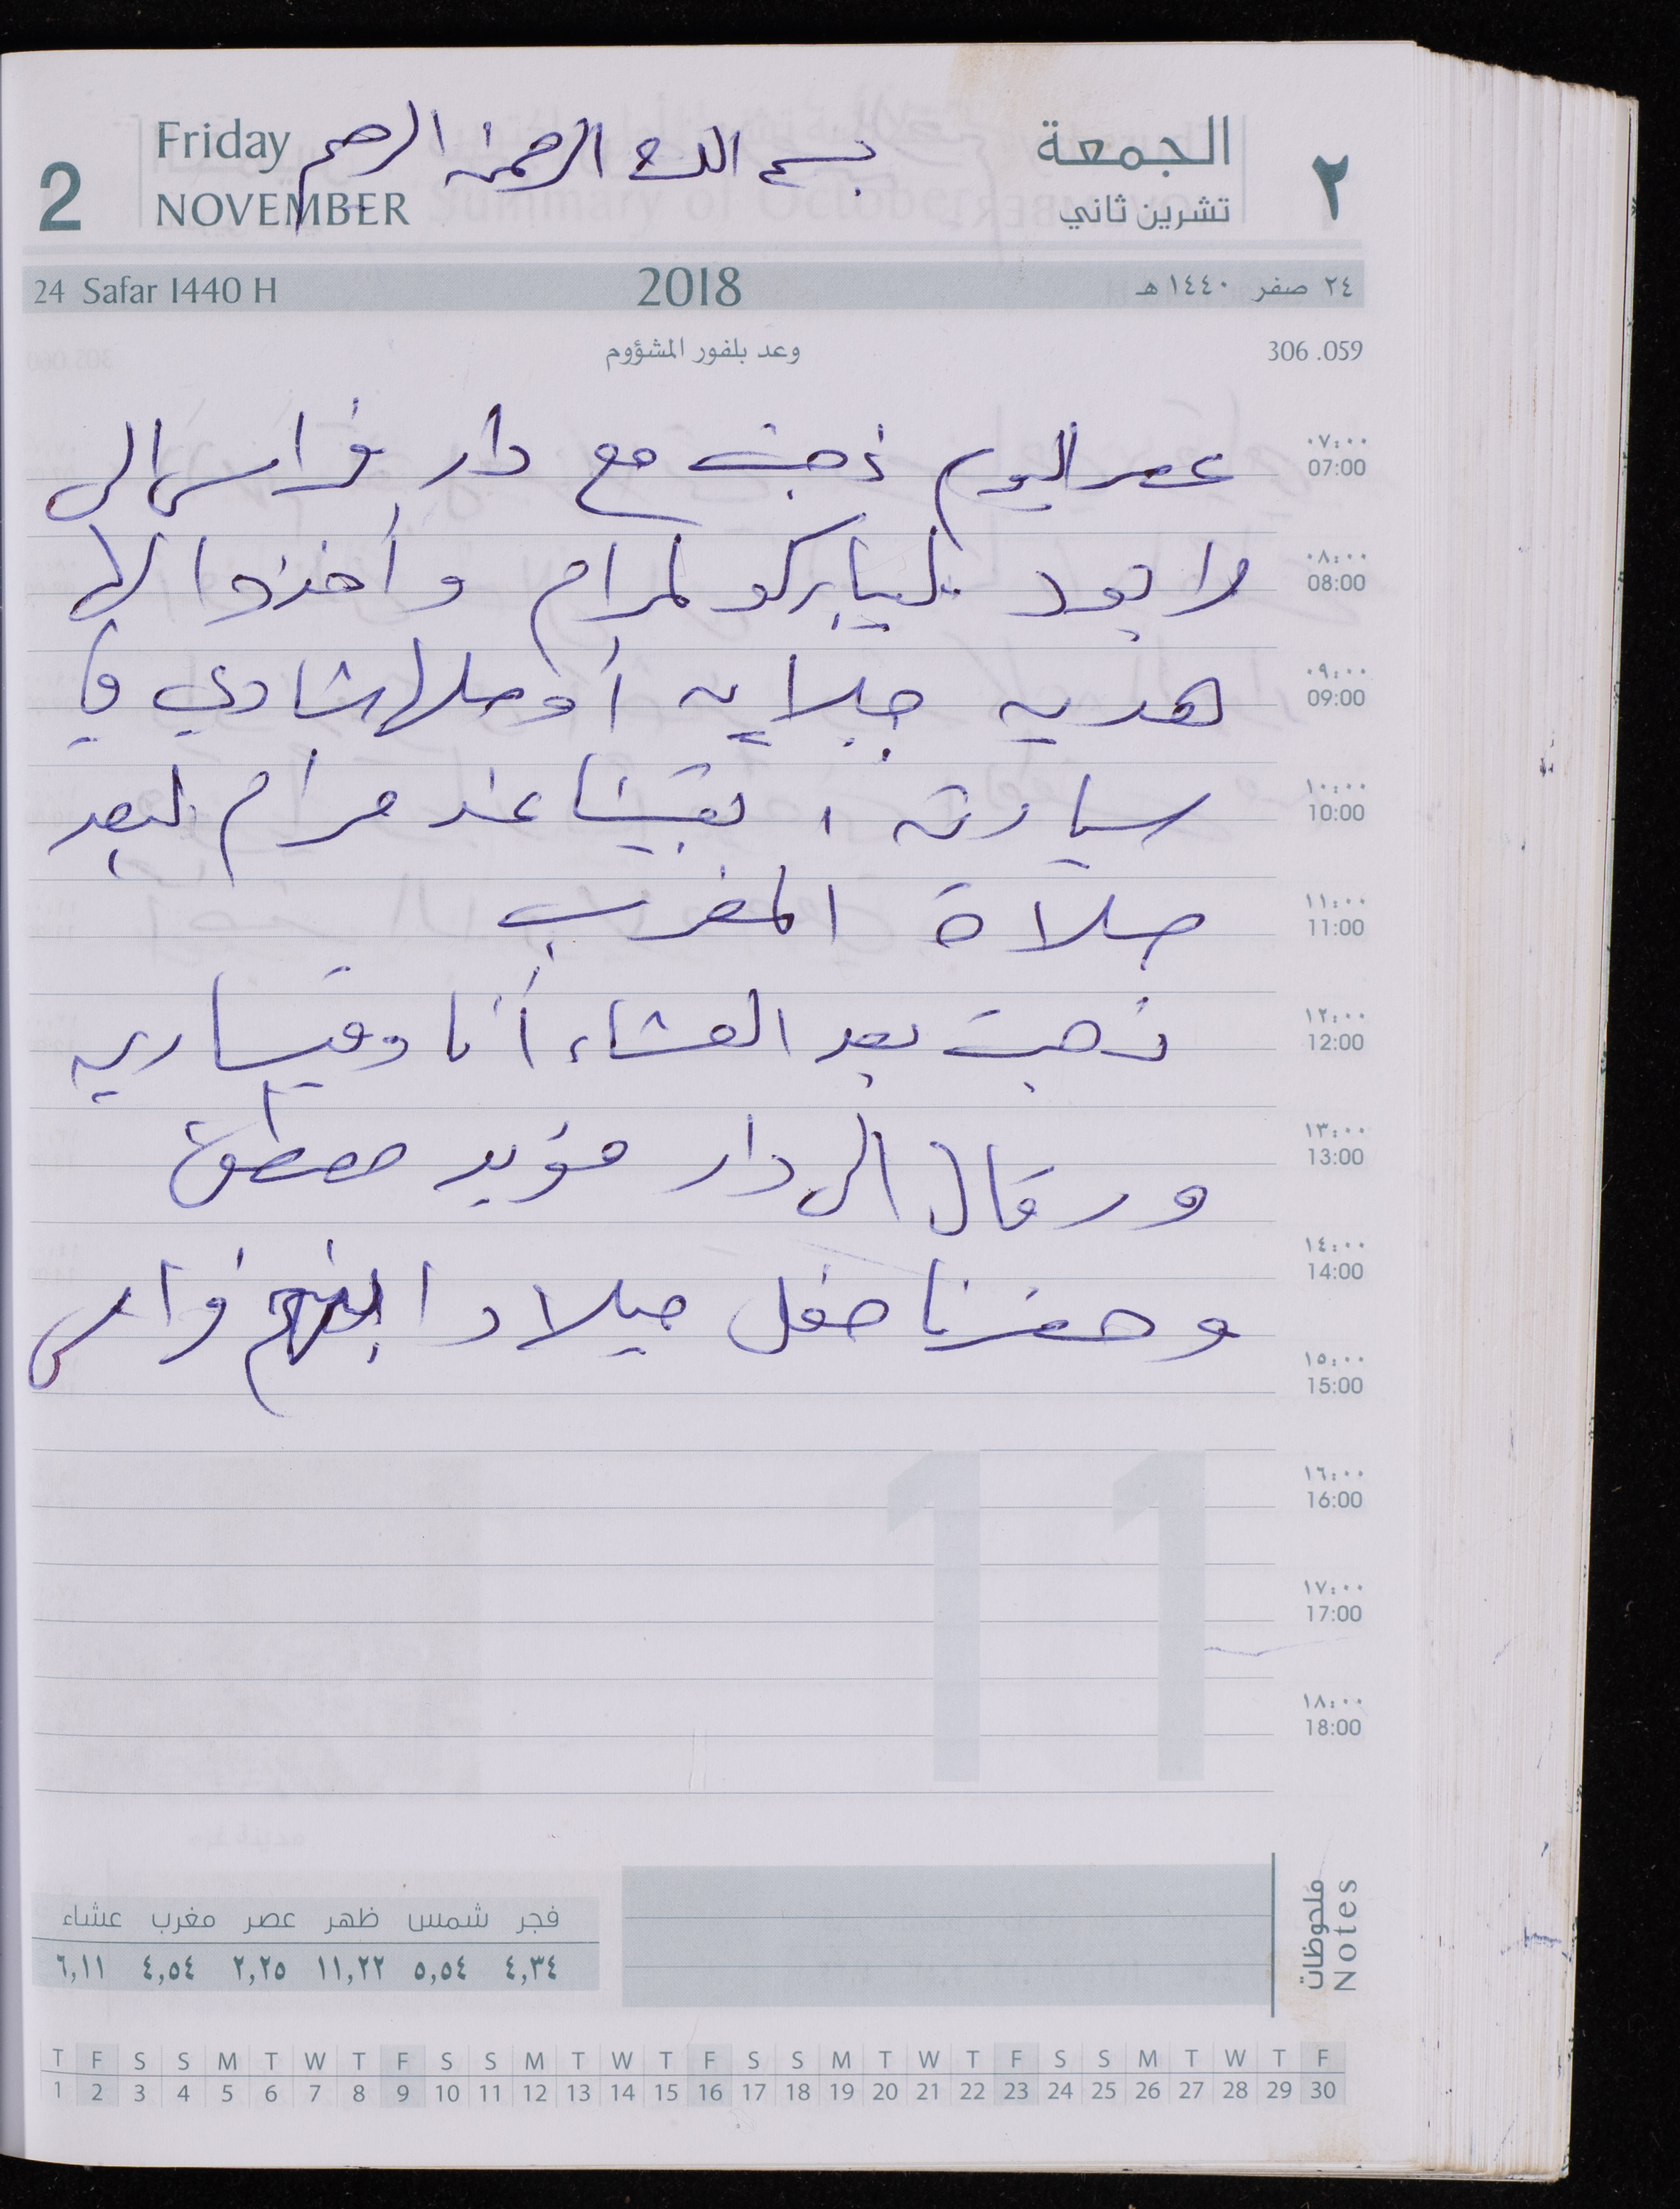 Friday
NOVEMBER
2
بسم الله الرحمن الرحيم
الجمعة
تشرين ثاني
٢
24 Safar 1440 H
2018
٢٤ صفر ١٤٤٠ هـ
وعد بلفور المشؤوم
306 .059
٠٧:٠٠
07:00
عصر اليوم ذهبت مع دار فراس الى
٠٨:٠٠
08:00
ليباركو لمرام وأخذوا لها
٠٩:٠٠
09:00
هديه جلايه أوصلها شادي في
١٠:٠٠
10:00
سيارته ، بقينا عند مرام لبعد
١١:٠٠
11:00
صلاة المغرب
١٢:٠٠
12:00
ذهبت بعد العشاء أنا وقيساريه
١٣:٠٠
13:00
ورقال الى دار مؤيد مصطفى
١٤:٠٠
14:00
وحضرنا حفل ميلاد ابنهم فراس
١٥:٠٠
15:00
١٦:٠٠
16:00
١٧:٠٠
17:00
١٨:٠٠
18:00
11
ملحوظات
Notes
فجر شمس ظهر عصر مغرب عشاء
٤,٣٤ ٥,٥٤ ١١,٢٢ ٢,٢٥ ٤,٥٤ ٦,١١
T F S S M T W T F S S M T W T F S S M T W T F S S M T W T F
1 2 3 4 5 6 7 8 9 10 11 12 13 14 15 16 17 18 19 20 21 22 23 24 25 26 27 28 29 30